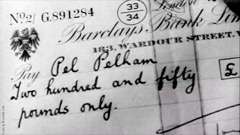 No2| G.891284
33
34
London
Barclays Bank Lim
183, WARDOUR STREET, W
Pay Pel Pelham
Two hundred and fifty
£
pounds only.